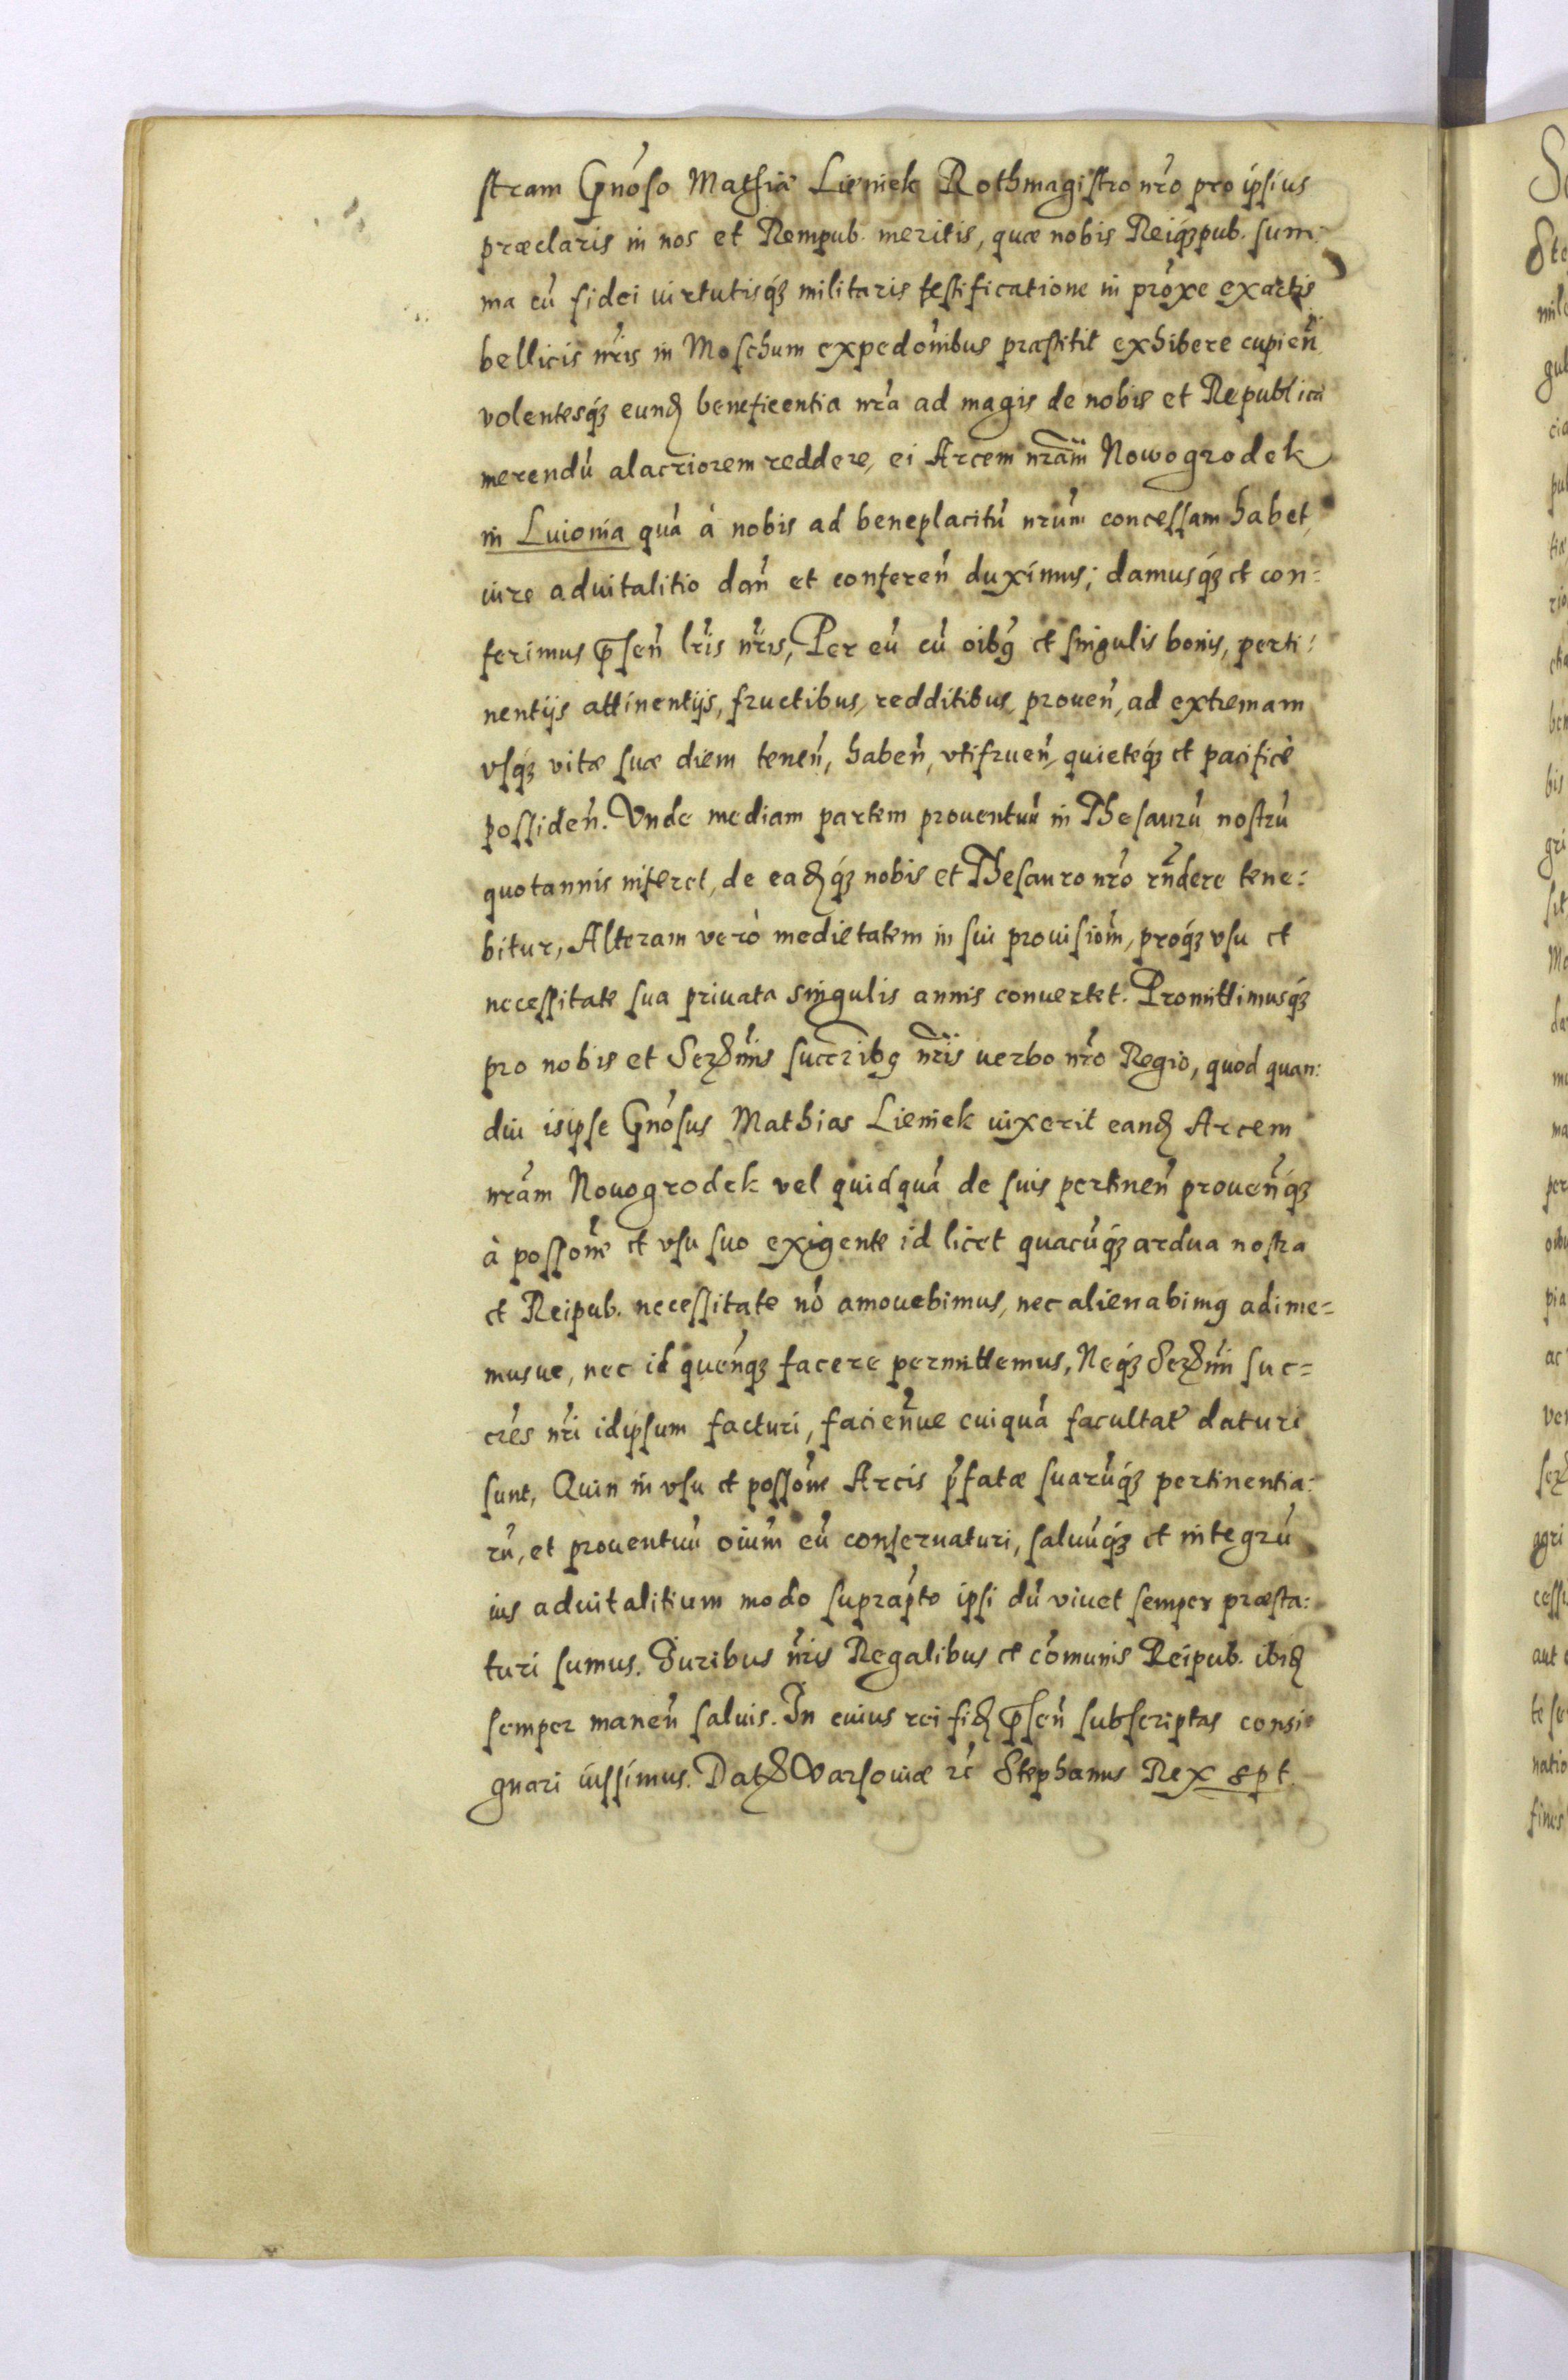 stram Gnoso Mathiæ Lieniek Rothmagistro nro pro ipsius
præclaris in nos et Rempub. meritis, quæ nobis Reiq́ꝫpub. sum:
ma cū fidei virtutisq́ꝫ militaris testificatione in proxe exactis
bellicis nris in Moschum expedonibus præstitit exhibere cupien̄
volentesq́ꝫ eund beneficentia nra ad magis de nobis et Republica
merendū alacriorem reddere, ei Arcem nram Nowogrodek
in Liuionia quā à nobis ad beneplacitū nrum concessam habet,
iure aduitalitio dan̄ et conferen̄ duximus; damusq́ꝫ et con=
ferimus p̄sen̄ lris nris, Per eū cū oibꝫ et singulis bonis, perti:
nentijs attinentijs, fructibus, redditibus, prouen̄, ad extremam
vsq́ꝫ vitæ suæ diem tenen̄, haben̄, vtifruen̄, quieteq́ꝫ et pacificè
possiden̄. Vnde mediam partem prouentuū in Thesaurū nostrū
quotannis inferet, de eadq́ꝫ nobis et Thesauro nro rn̄dere tene:
bitur, Alteram verò medietatem in sui prouisiom̄, proq́ꝫ vsu et
necessitate sua priuata singulis annis conuertet. Promittimusq́ꝫ
pro nobis et Sermis succribꝫ nris verbo nro Regio, quod quan:
diu is ipse Gnosus Mathias Lieniek vixerit eand Arcem
nram Nouogrodek vel quidquā de suis pertinen̄ prouen̄q́ꝫ
à possone et vsu suo exigente id licet quacūq́ꝫ ardua nostra
et Reipub. necessitate nō amouebimus, nec alienabimꝫ adime=
musue, nec id quenq́ꝫ facere permittemus, Neq́ꝫ Sermi suc=
cres nri idipsum facturi, facien̄ue cuiquā facultat̄ daturi
sunt, Quin in vsu et possone Arcis pfatæ suarūq́ꝫ pertinentia:
rū, et prouentuū oium eū conseruaturi, saluūq́ꝫ et integrū
ius aduitalitium modo suprapto ipsi dū viuet semper præsta:
turi sumus. Iuribus nris Regalibus et comunis Reipub. ibid
semper manen̄ saluis. In cuius rei fid p̄sen̄ subscriptas consi=
gnari iussimus. Dat Varsouiæ rc Stephanus Rex spt.